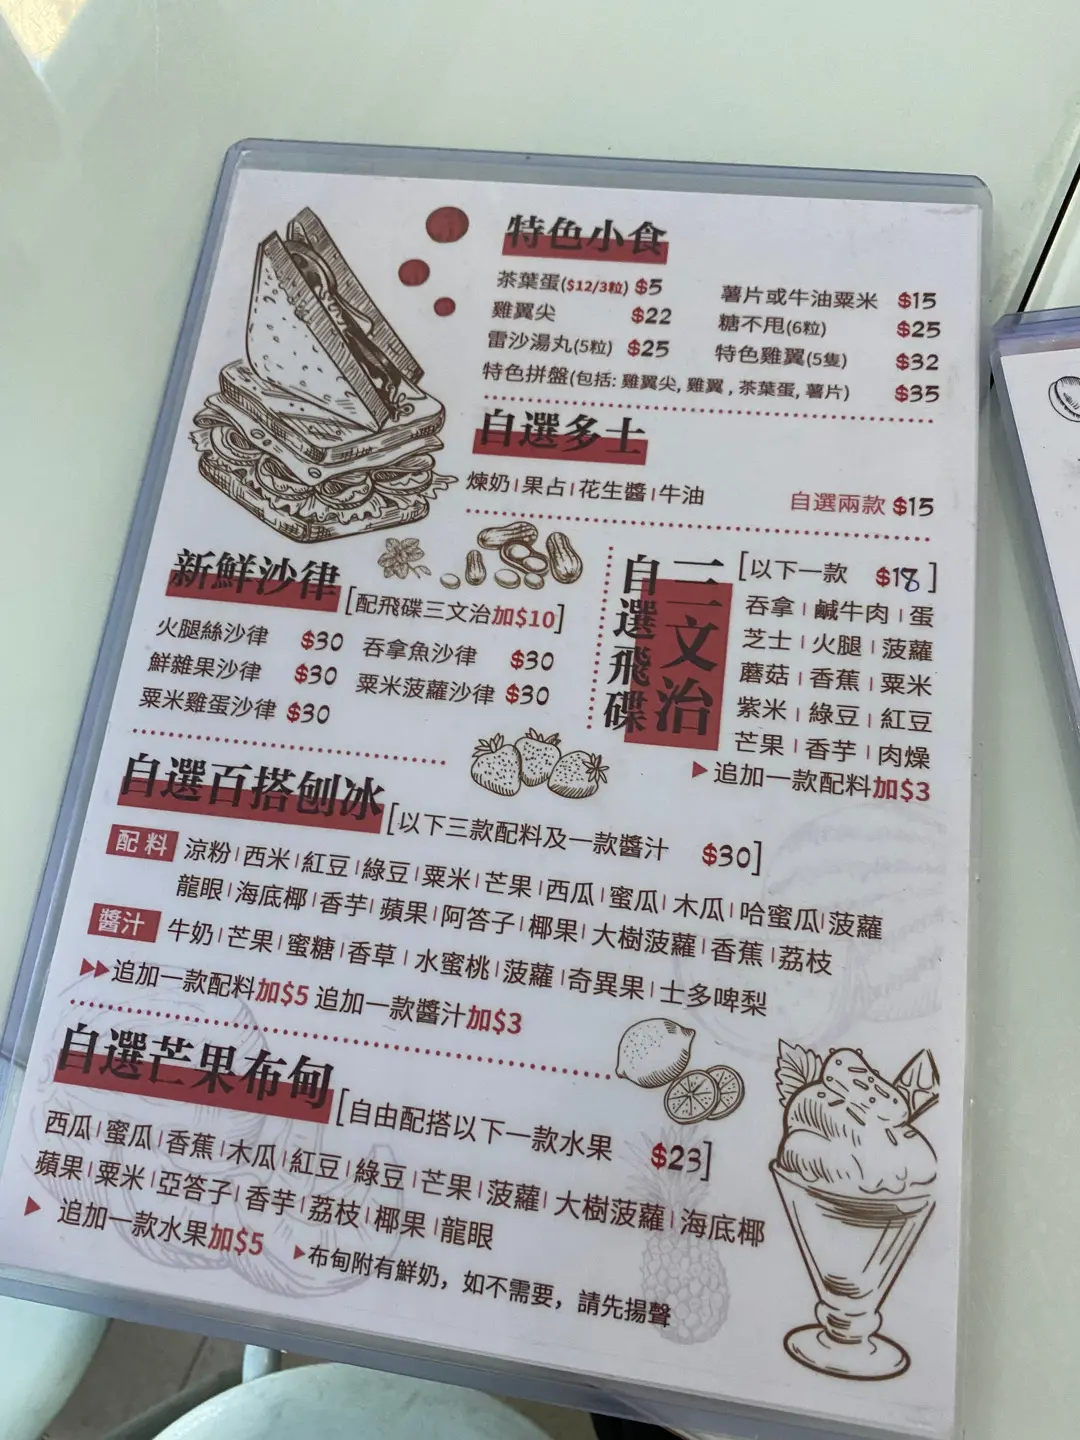 特色小食
茶葉蛋($12/3粒) $5
雞翼尖 $22
雷沙湯丸(5粒) $25
薯片或牛油粟米 $15
糖不甩(6粒) $25
特色雞翼(5隻) $32
特色拼盤(包括: 雞翼尖, 雞翼, 茶葉蛋, 薯片) $35
自選多士
煉奶|果占|花生醬|牛油 自選兩款 $15
新鮮沙律
[配飛碟三文治加$10]
火腿絲沙律 $30
鮮雜果沙律 $30
粟米雞蛋沙律 $30
吞拿魚沙律 $30
粟米菠蘿沙律 $30
自選飛碟
三文治
[以下一款 $18]
吞拿|鹹牛肉|蛋
芝士|火腿|菠蘿
蘑菇|香蕉|粟米
紫米|綠豆|紅豆
芒果|香芋|肉燥
▶追加一款配料加$3
自選百搭刨冰
[以下三款配料及一款醬汁 $30]
配料 涼粉|西米|紅豆|綠豆|粟米|芒果|西瓜|蜜瓜|木瓜|哈蜜瓜|菠蘿
龍眼|海底椰|香芋|蘋果|阿答子|椰果|大樹菠蘿|香蕉|荔枝
醬汁 牛奶|芒果|蜜糖|香草|水蜜桃|菠蘿|奇異果|士多啤梨
▶▶追加一款配料加$5 追加一款醬汁加$3
自選芒果布甸
[自由配搭以下一款水果 $23]
西瓜|蜜瓜|香蕉|木瓜|紅豆|綠豆|芒果|菠蘿|大樹菠蘿|海底椰
蘋果|粟米|亞答子|香芋|荔枝|椰果|龍眼
▶ 追加一款水果加$5 ▶布甸附有鮮奶，如不需要，請先揚聲